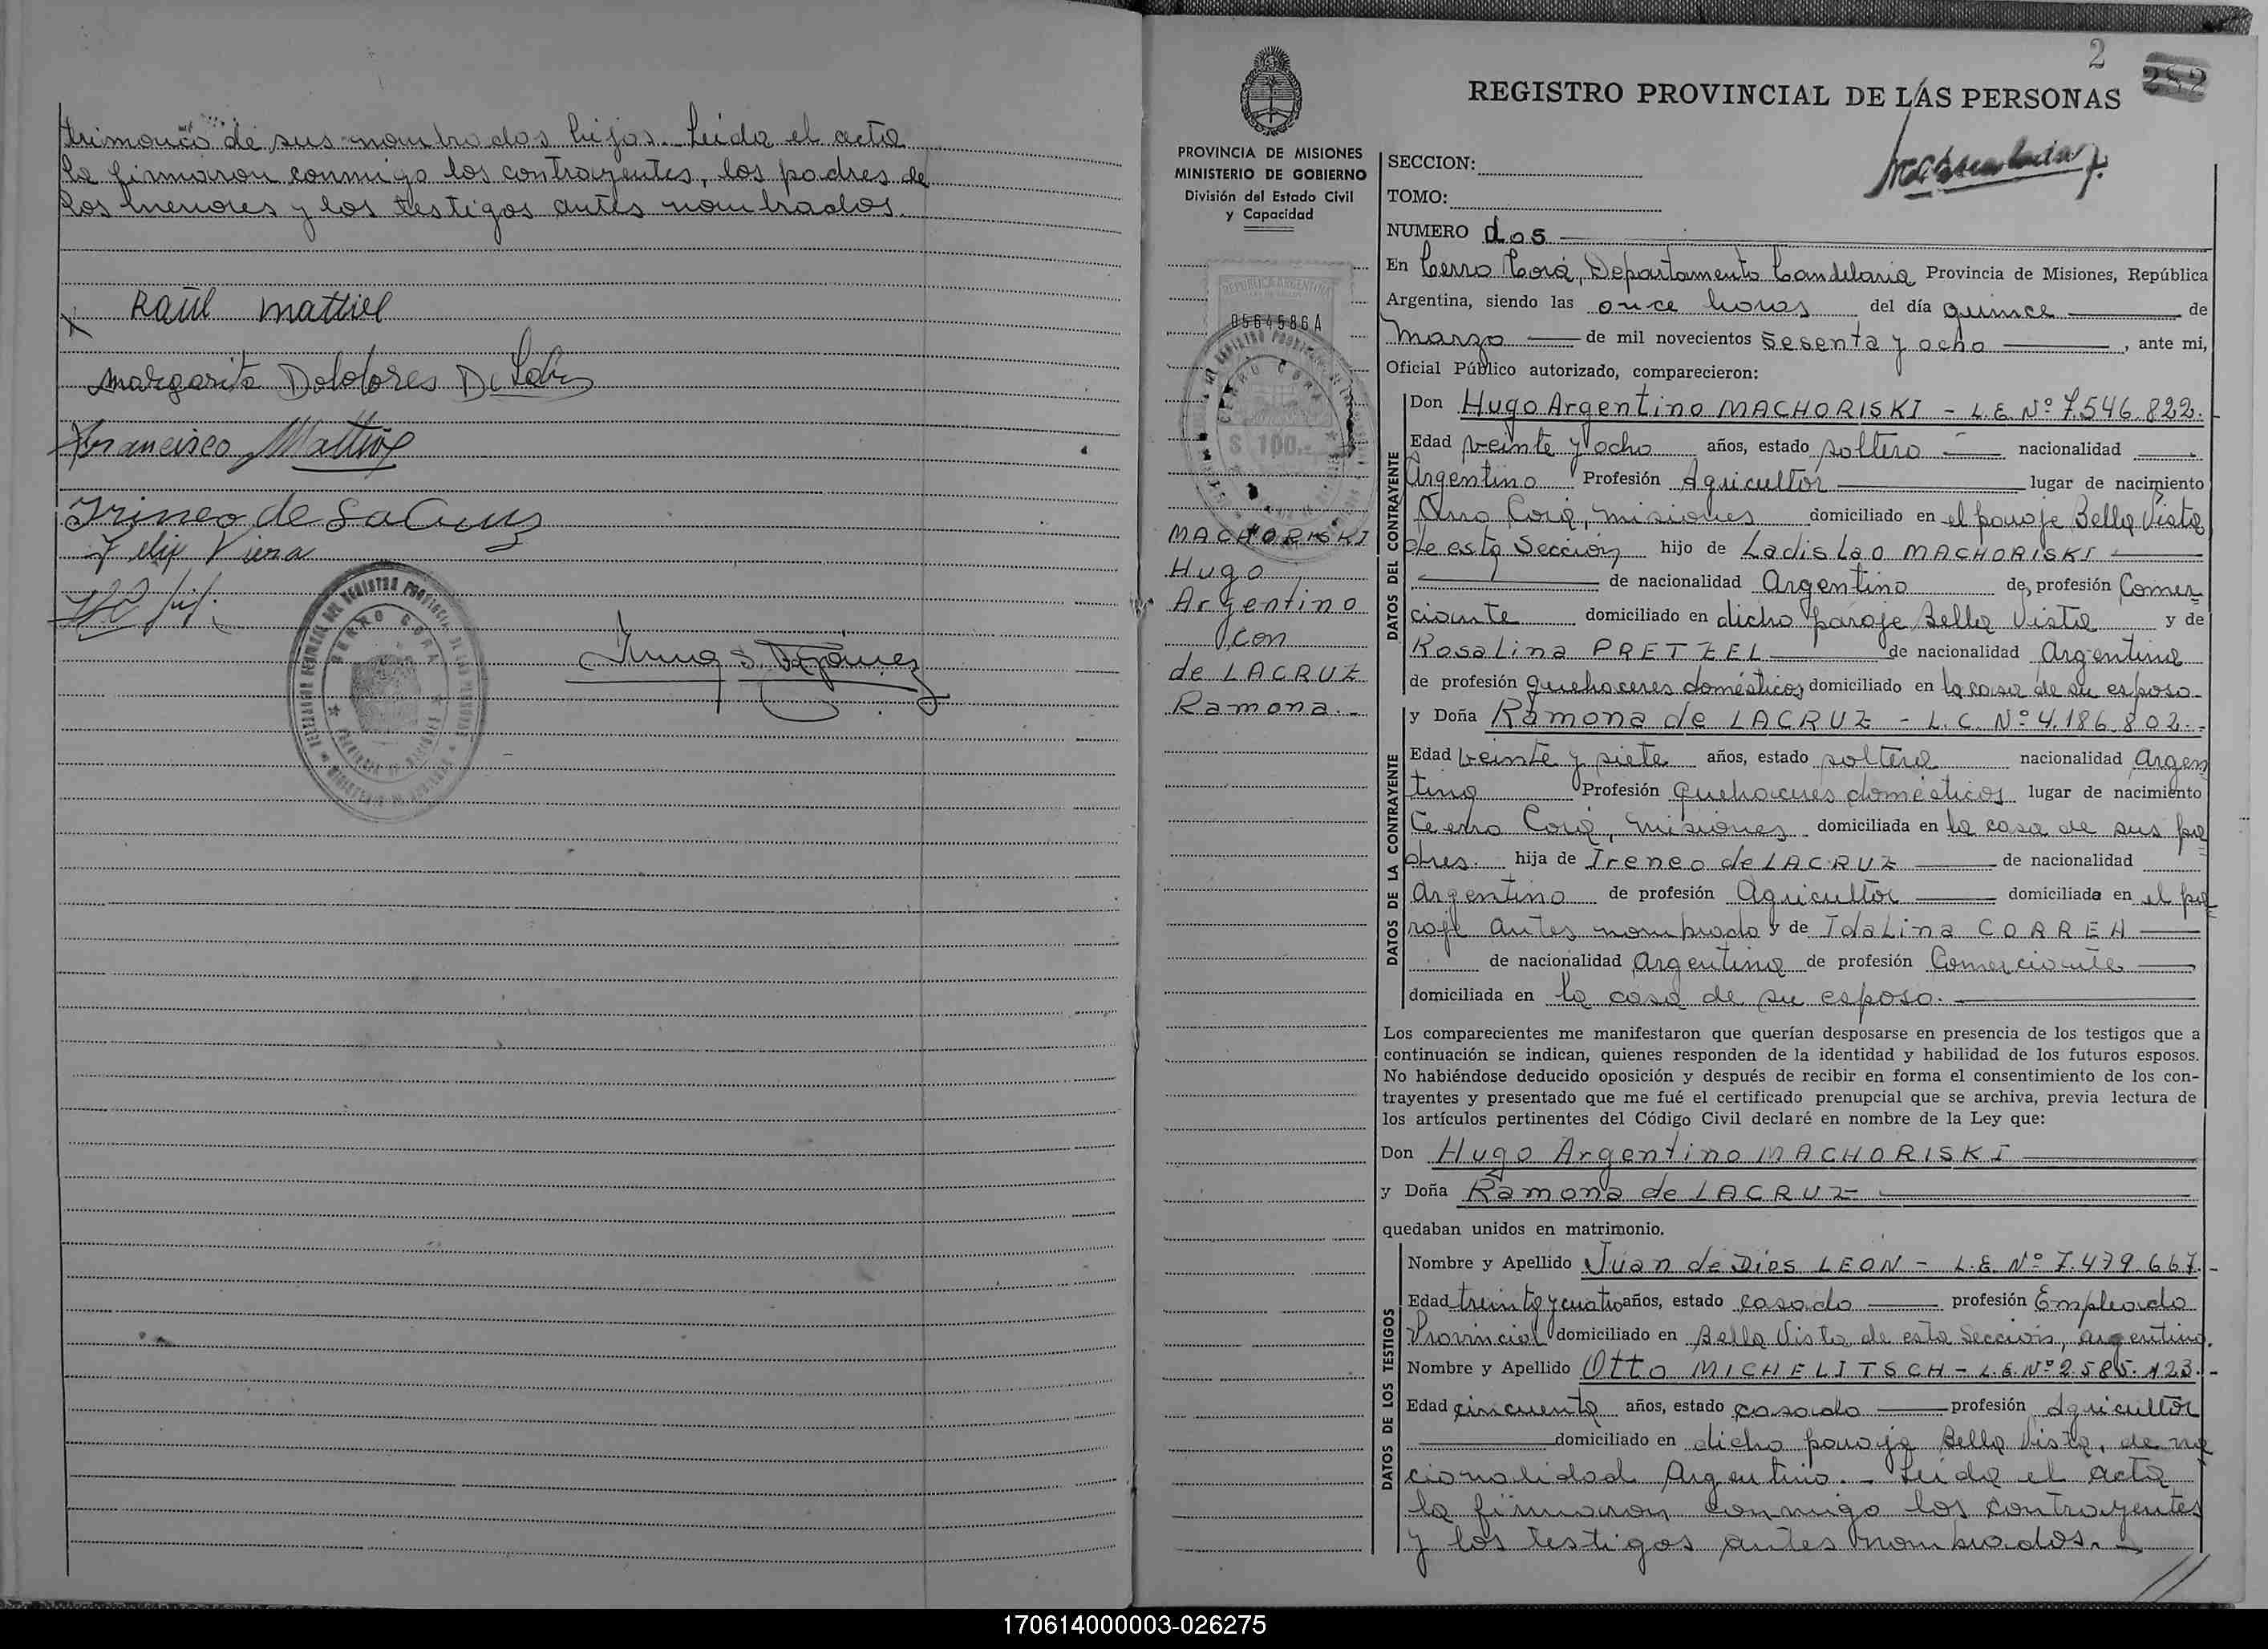 trimonio de sus nombrados hijos.- Leida el acta
la firmaron conmigo los contrayentes, los padres de
los menores y los testigos antes nombrados.
Raúl Mattiel
Margarita Dolotores De La
Francisco
Irineo de la Cruz
Felix Viera
2
282
REGISTRO PROVINCIAL DE LAS PERSONAS
PROVINCIA DE MISIONES
MINISTERIO DE GOBIERNO
División del Estado Civil
y Capacidad
REPUBLICA ARGENTINA
0564586A
CERRO CORA
$ 100.-
MACHORISKI
Hugo
Argentino
con
de LACRUZ
Ramona.-
SECCION:
TOMO:
NUMERO dos
En Cerro Corá, Departamento Candelaria Provincia de Misiones, República
Argentina, siendo las once horas del día quince de
marzo de mil novecientos sesenta y ocho, ante mi,
Oficial Público autorizado, comparecieron:
DATOS DEL CONTRAYENTE
Don Hugo Argentino MACHORISKI - L.E. Nº 7.546.822.-
Edad veinte y ocho años, estado soltero nacionalidad
Argentino Profesión Agricultor lugar de nacimiento
Corá, Misiones domiciliado en el paraje Bella Vista
de esta Sección hijo de Ladislao MACHORISKI
de nacionalidad Argentino de profesión Comer
ciante domiciliado en dicho paraje Bella Vista y de
Rosalina PRETZEL de nacionalidad Argentina
de profesión quehaceres domésticos domiciliado en la casa de su esposo.-
DATOS DE LA CONTRAYENTE
y Doña Ramona de LACRUZ - L.C. Nº 4.186.802.-
Edad veinte y siete años, estado soltera nacionalidad Argen
tina Profesión Quehaceres domésticos lugar de nacimiento
Cerro Corá, Misiones domiciliada en la casa de sus pa
dres. hija de Ireneo de LACRUZ de nacionalidad
Argentino de profesión Agricultor domiciliada en el pa
raje antes nombrado y de Idalina CORREA
de nacionalidad Argentina de profesión Comerciante
domiciliada en la casa de su esposo.
Los comparecientes me manifestaron que querían desposarse en presencia de los testigos que a
continuación se indican, quienes responden de la identidad y habilidad de los futuros esposos.
No habiéndose deducido oposición y después de recibir en forma el consentimiento de los con-
trayentes y presentado que me fué el certificado prenupcial que se archiva, previa lectura de
los artículos pertinentes del Código Civil declaré en nombre de la Ley que:
Don Hugo Argentino MACHORISKI
y Doña Ramona de LACRUZ
quedaban unidos en matrimonio.
DATOS DE LOS TESTIGOS
Nombre y Apellido Juan de Dios LEON - L.E. Nº 7.479.667.-
Edad treinta y cuatro años, estado casado profesión Empleado
Provincial domiciliado en Bella Vista de esta Sección, argentino.
Nombre y Apellido Otto MICHELITSCH - L.E. Nº 2.585.123.-
Edad cincuenta años, estado casado profesión agricultor
domiciliado en dicho paraje Bella Vista, de na
cionalidad Argentino.- Leida el acta
la firmaron conmigo los contrayentes
y los testigos antes nombrados.-
170614000003-026275